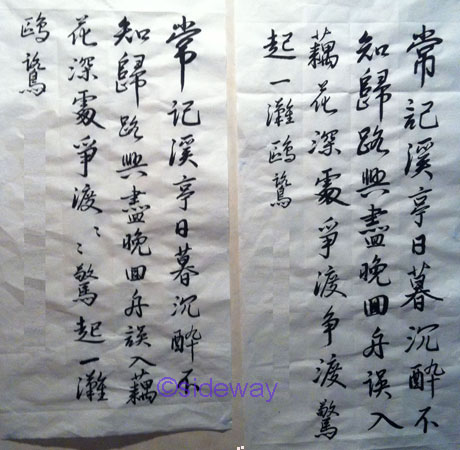 常記溪亭日暮沉醉不
知歸路興盡晚回舟誤入
藕花深處爭渡爭渡驚
起一灘鷗鷺
常記溪亭日暮沉醉不
知歸路興盡晚回舟誤入藕
花深處爭渡〻〻驚起一灘
鷗鷺
©sideway